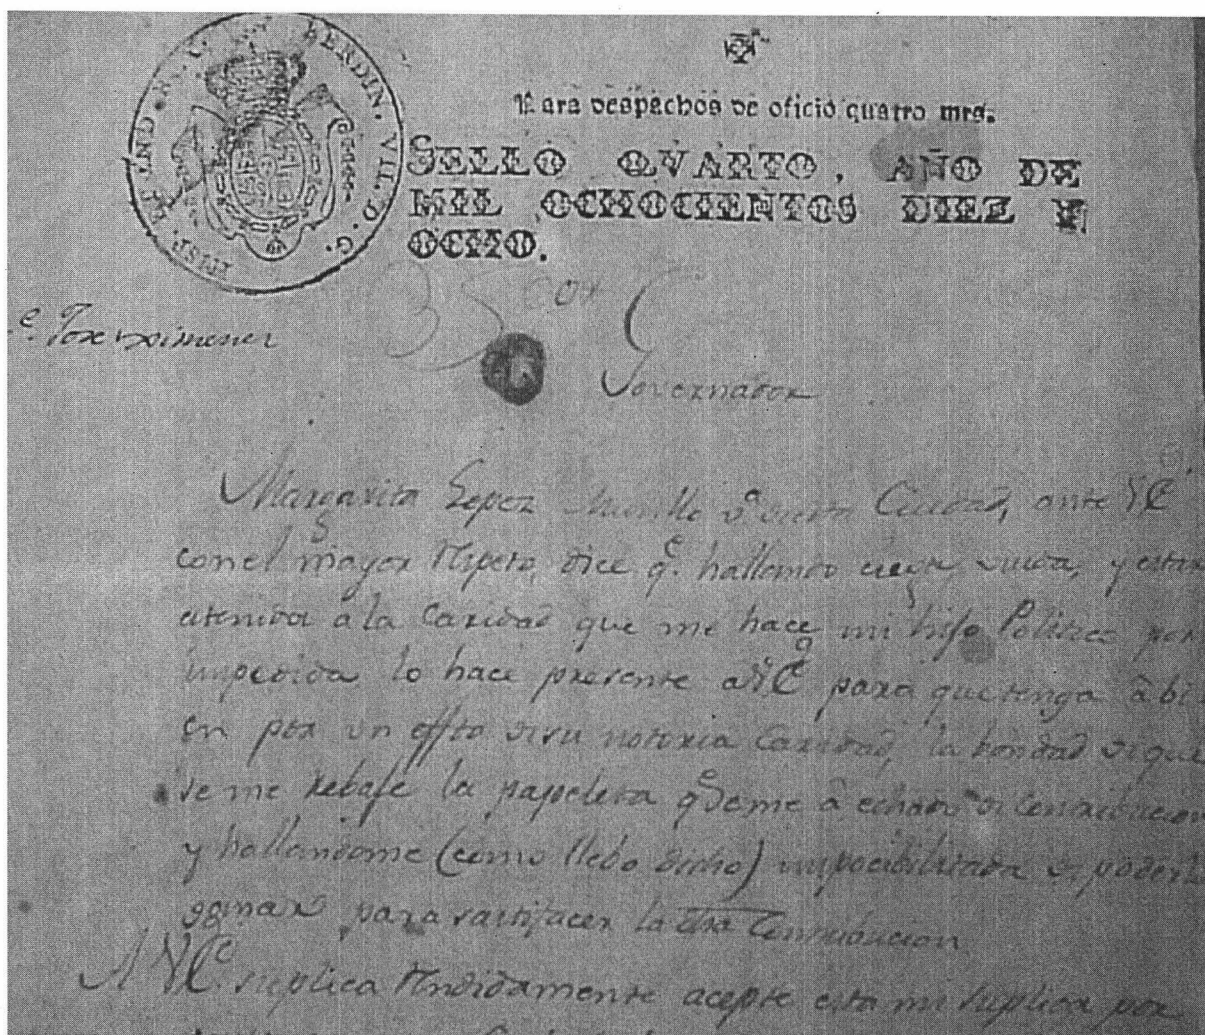 HISP. ET IND. R. FERDIN. VII. D. G.
Para despachos de oficio quatro mrs.
SELLO QVARTO, AÑO DE
MIL OCHOCIENTOS DIEZ Y
OCHO.
Jose Ximenez
Sor
Governador
Margarita Lopez Murillo vª desta Ciudad, ante V.E
con el mayor respeto, dice q.e hallando ciega, viuda, y estar
atenida a la Caridad que me hace mi hijo Politico por
impedida lo hace presente a V.E para que tenga â bi
en por un effto de su notoria Caridad, la bondad de que
se me rebaje la papeleta q.e se me â echado de contribucion
y hallandome (como llebo dicho) impocibilitada de poderlo
ganar para sastifacer la dha Contribucion
A V.E. suplica rendidamente acepte esta mi suplica por